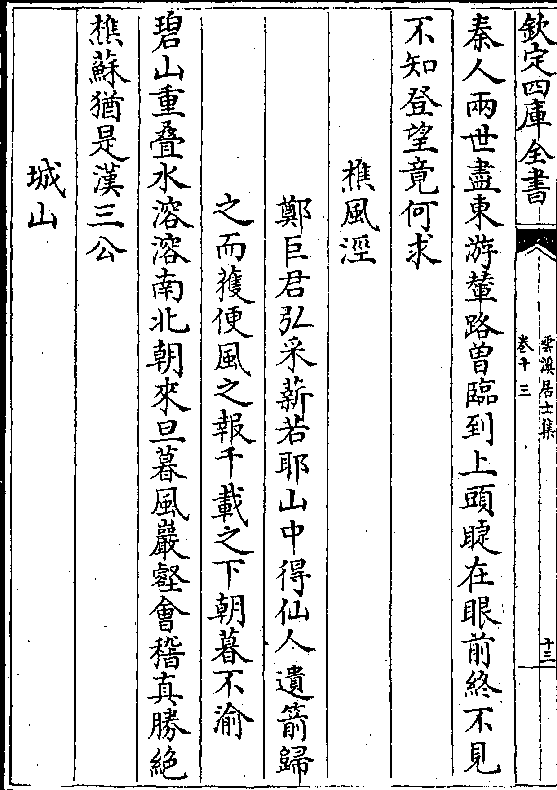 欽定四庫全書
雲溪居士集
卷十三
十三
秦人兩世盡東游輦路曾臨到上頭睫在眼前終不見
不知登望竟何求
樵風涇
鄭巨君弘采薪若耶山中得仙人遺箭歸
之而獲便風之報千載之下朝暮不渝
碧山重疊水溶溶南北朝來旦暮風巖壑會稽真勝絶
樵蘇猶是漢三公
城山